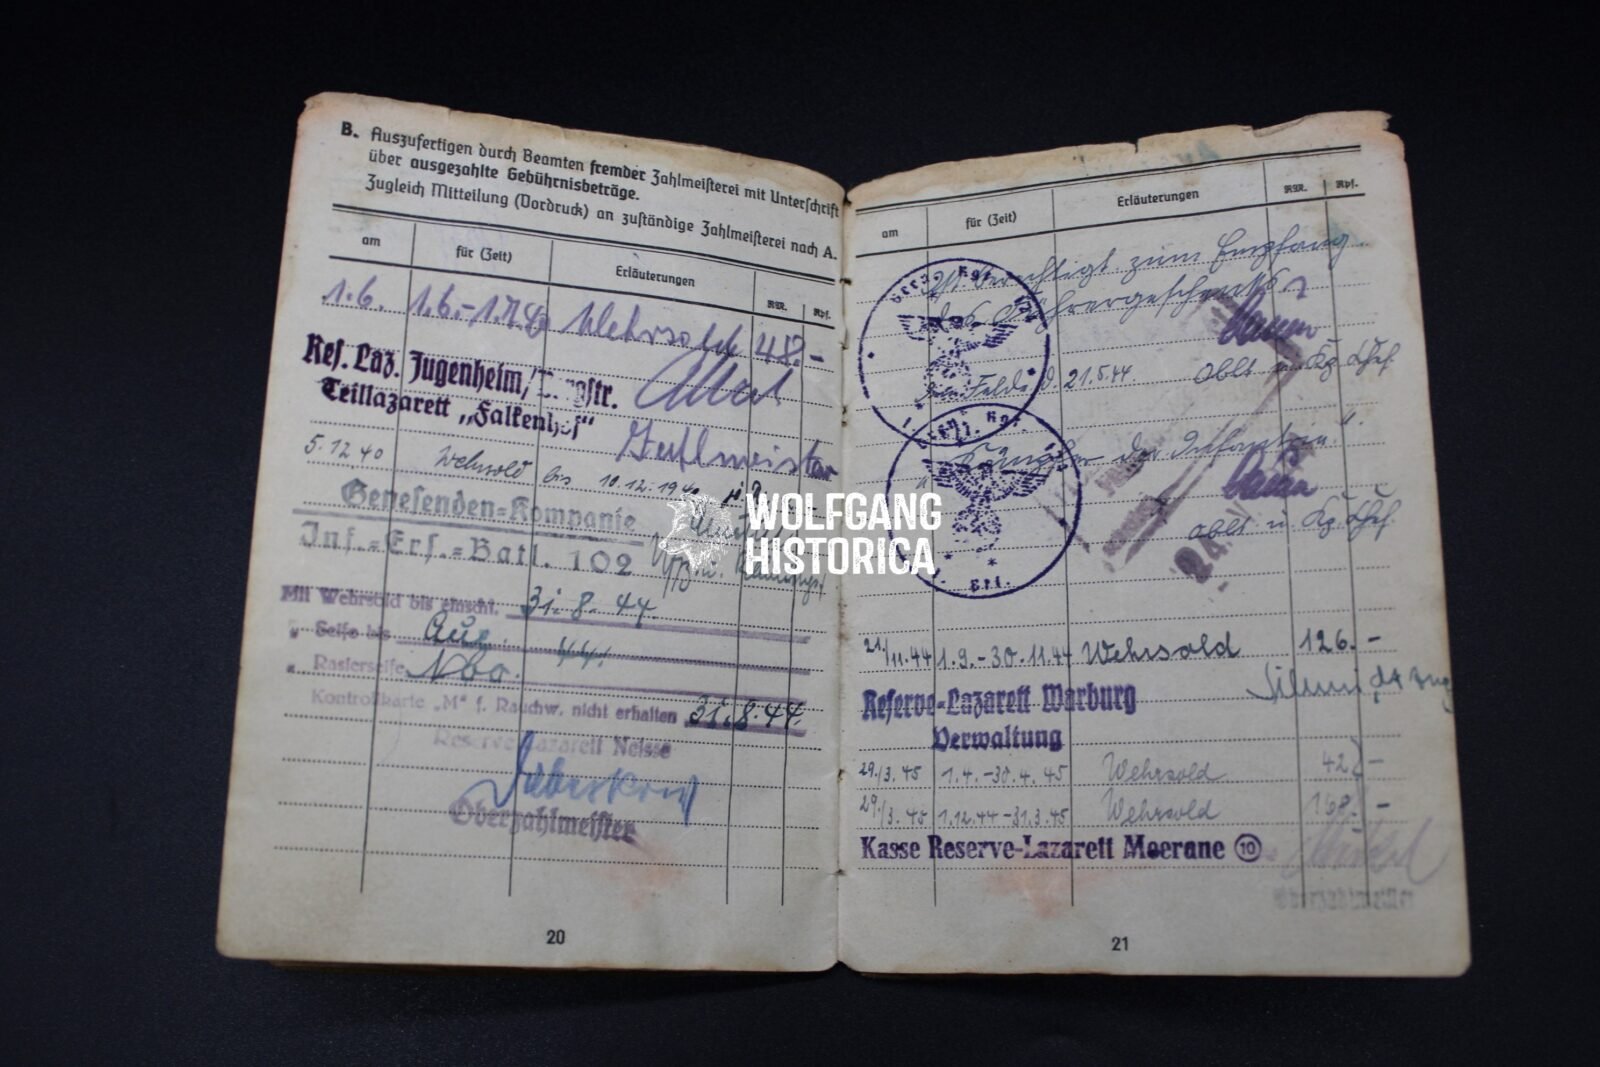 B. Auszufertigen durch Beamten fremder Zahlmeisterei mit Unterschrift
über ausgezahlte Gebührnisbeträge.
Zugleich Mitteilung (Vordruck) an zuständige Zahlmeisterei nach A.
am für (Zeit) Erläuterungen RM. Rpf.
1.6. 1.6.-1.7.40 Wehrsold 48.-
Res. Laz. Jugenheim/
Teillazarett „Falkenhof"
5.12.40 Wehrsold bis 10.12.1940
Genesenden-Kompanie
Inf.-Ers.-Batl. 102
Mit Wehrsold bis einschl. 31.8.44.
„ Seife bis Aug. 44.
„ Rasierseife Nov.
Kontrollkarte „M" f. Rauchw. nicht erhalten 31.8.44.
Reserve-Lazarett Neisse
Oberzahlmeister
20
am für (Zeit) Erläuterungen RM. Rpf.
Ist berechtigt zum Empfang
des Führergeschenks
Im Felde, d. 21.5.44 Oblt. u. Kp. Chef
Oblt. u. Kp. Chef
21./11.44 1.9.-30.11.44 Wehrsold 126.-
Reserve-Lazarett Warburg
Verwaltung
29./3.45 1.4.-30.4.45 Wehrsold 42.-
29./3.45 1.12.44-31.3.45 Wehrsold 168.-
Kasse Reserve-Lazarett Meerane 10
Oberzahlmeister
21
WOLFGANG
HISTORICA